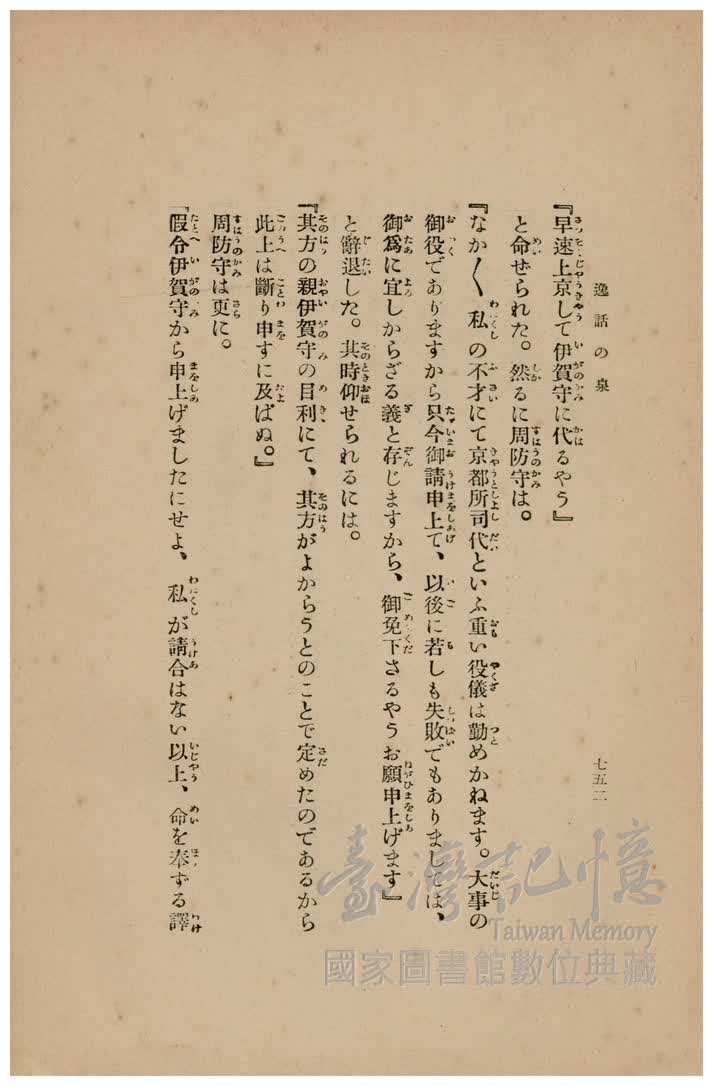 逸話の泉
七五二
『早速上京して伊賀守に代るやう』
と命ぜられた。然るに周防守は。
『なか〳〵私の不才にて京都所司代といふ重い役儀は勤めかねます。大事の
御役でありますから只今御請申上て、以後に若しも失敗でもありましては、
御爲に宜しからざる義と存じますから、御免下さるやうお願申上げます』
と辭退した。其時仰せられるには。
『其方の親伊賀守の目利にて、其方がよからうとのことで定めたのであるから
此上は斷り申すに及ばぬ。』
周防守は更に。
『假令伊賀守から申上げましたにせよ、私が請合はない以上、命を奉ずる譯
臺灣記憶
Taiwan Memory
國家圖書館數位典藏